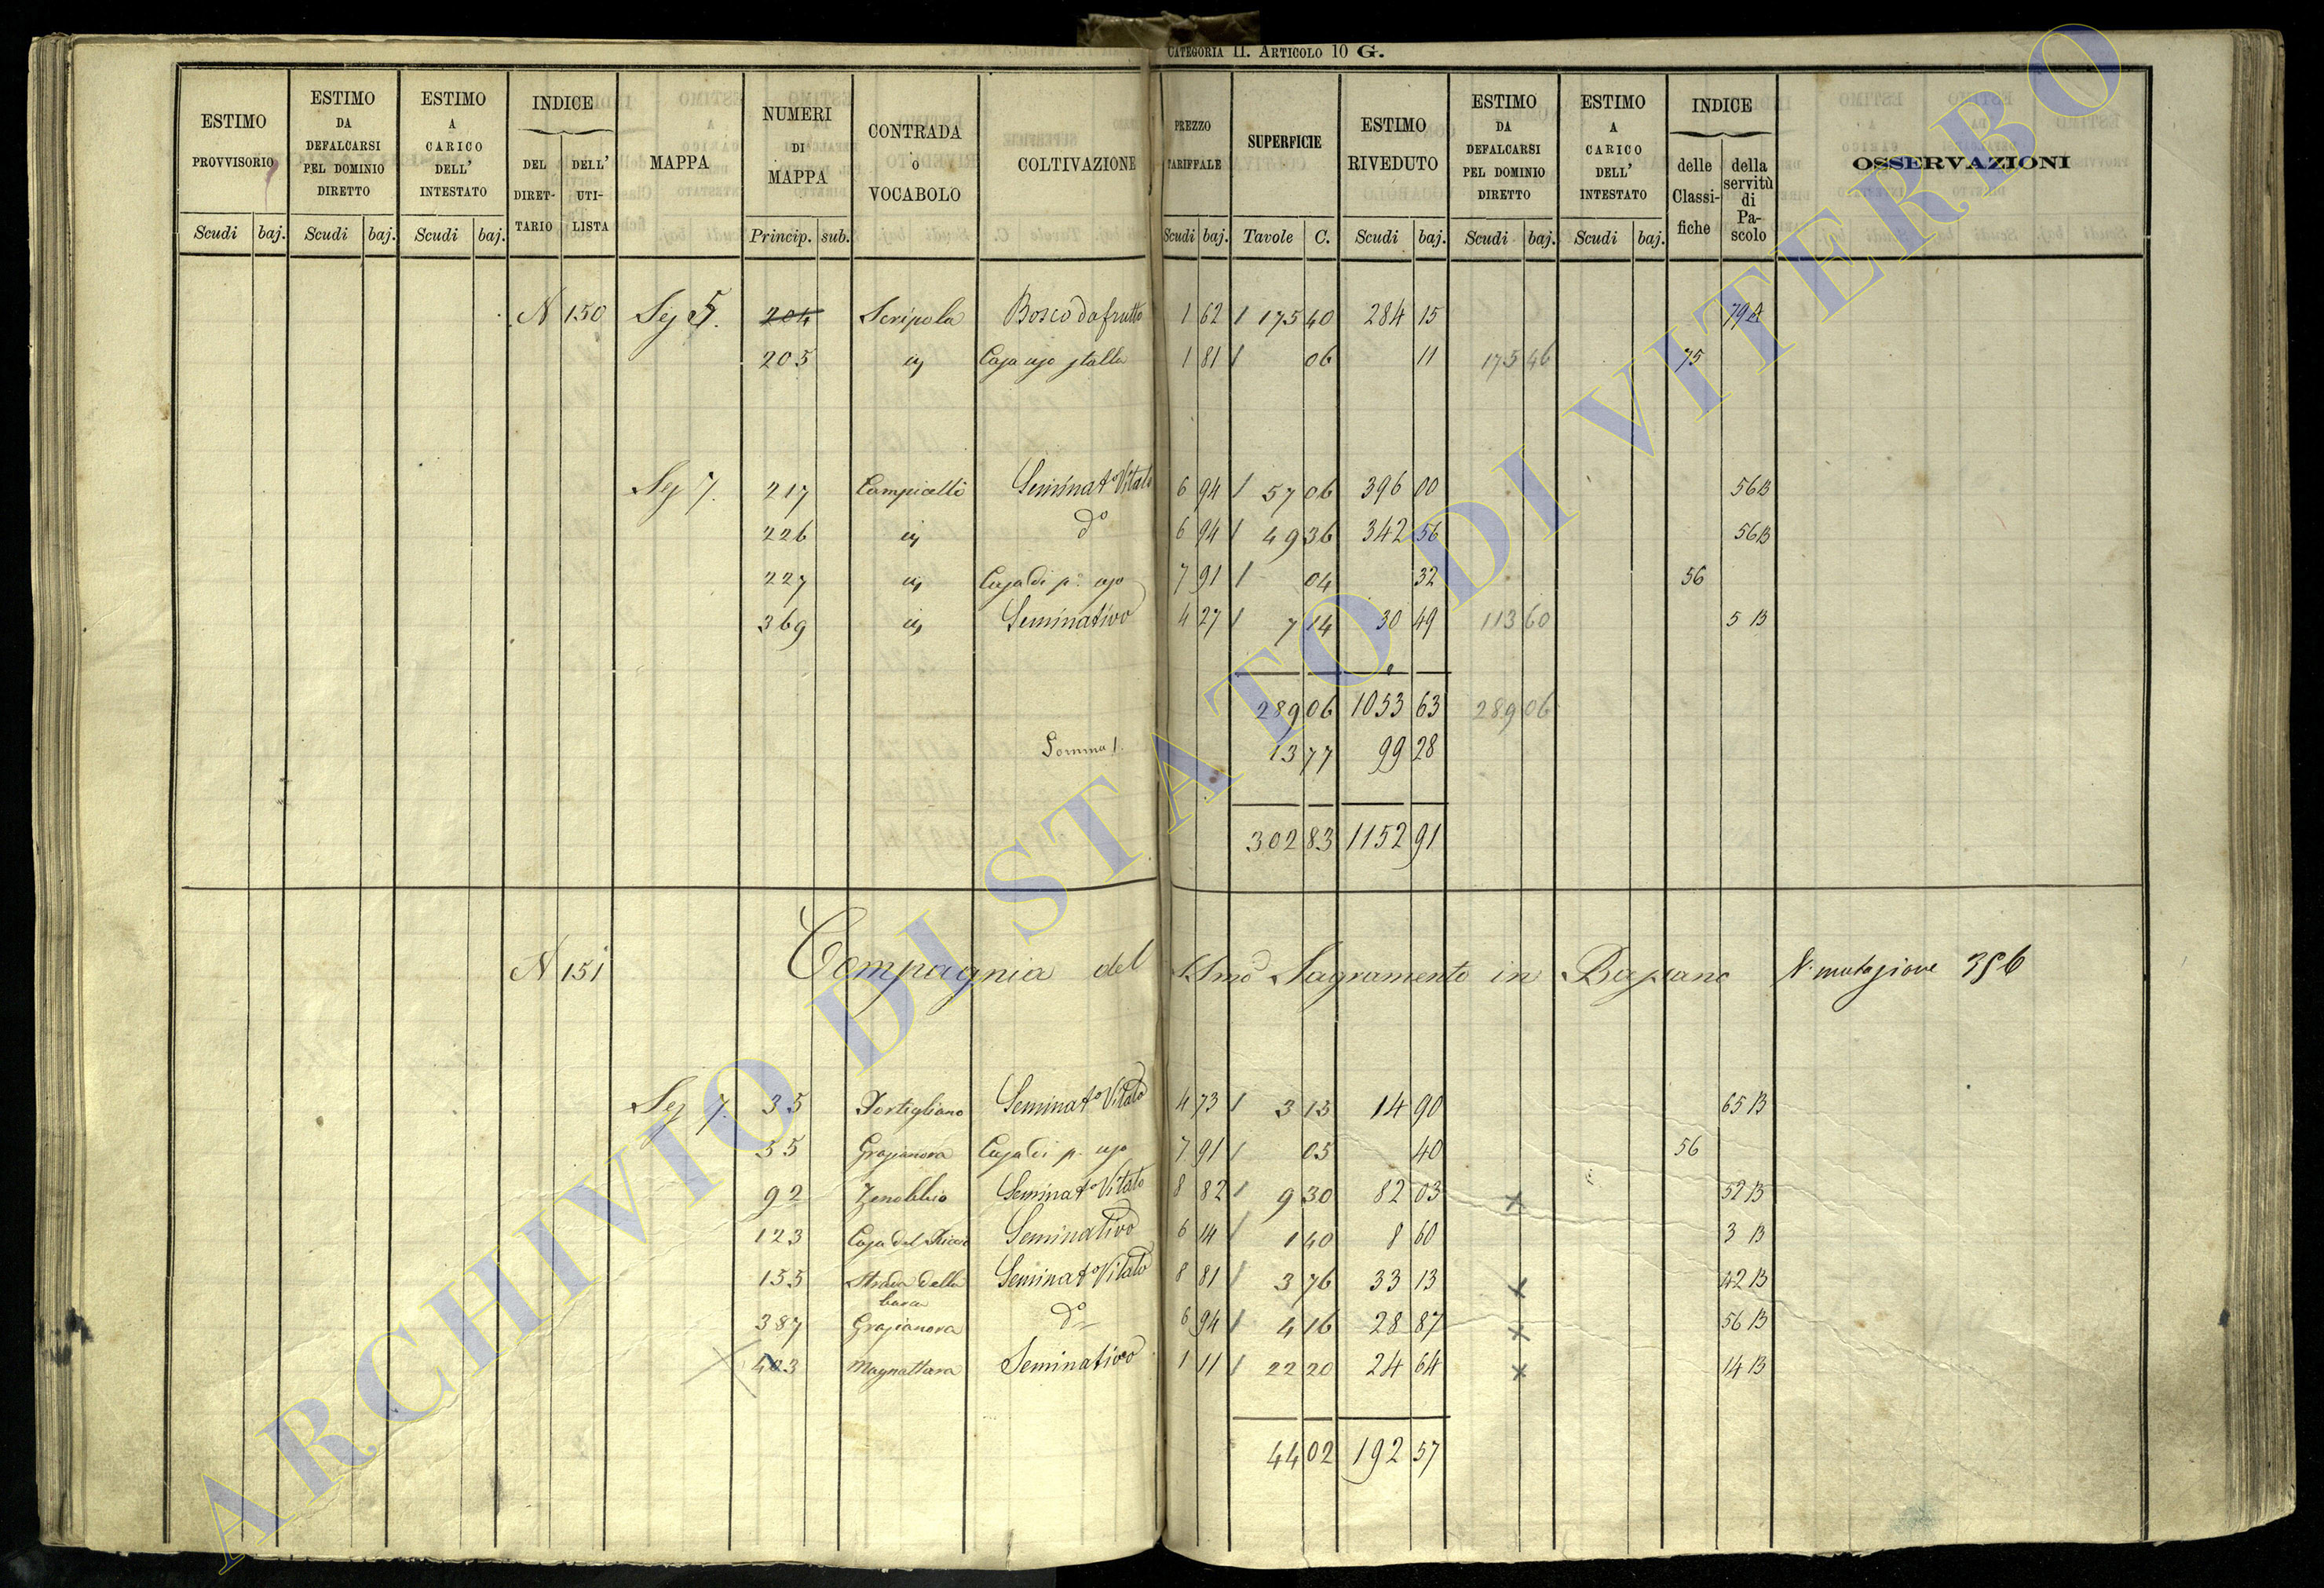 CATEGORIA II. ARTICOLO 10 G.
ESTIMO PROVVISORIO Scudi baj.
ESTIMO DA DEFALCARSI PEL DOMINIO DIRETTO Scudi baj.
ESTIMO A CARICO DELL' INTESTATO Scudi baj.
INDICE DEL DIRET-TARIO DELL' UTI-LISTA
MAPPA
NUMERI DI MAPPA Princip. sub.
CONTRADA o VOCABOLO
COLTIVAZIONE
PREZZO TARIFFALE Scudi baj.
SUPERFICIE Tavole C.
ESTIMO RIVEDUTO Scudi baj.
ESTIMO DA DEFALCARSI PEL DOMINIO DIRETTO Scudi baj.
ESTIMO A CARICO DELL' INTESTATO Scudi baj.
INDICE delle Classi-fiche della servitù di Pa-scolo
OSSERVAZIONI
N 150 Sez 5. 204 Scripola Bosco da frutto 1 62 / 175 40 284 15 79 A
205 Casa uso stalla 1 81 / 06 11 175 46 75
Sez 7. 217 Campicelli Seminat° Vitato 6 94 / 57 06 396 00 56 B
226 d° 6 94 / 49 36 342 56 56 B
227 Casa di p. uso 7 91 / 04 32 56
369 Seminativo 4 27 / 7 14 30 49 113 60 5 B
289 06 1053 63 289 06
Somma 1. 13 77 99 28
302 83 1152 91
N 151 Compagnia del SSmo Sagramento in Bassano N. mutazione 356
Sez 7. 35 Portigliano Seminat° Vitato 4 73 / 3 15 14 90 65 B
55 Grazianova Casa di p. uso 7 91 / 05 40 56
92 Zenobbio Seminat° Vitato 8 82 / 9 30 82 03 x 52 B
123 Casa del Seminativo 6 14 / 1 40 8 60 3 B
153 Strada della Seminat° Vitato 8 81 / 3 76 33 13 x 42 B
387 Grazianova d° 6 94 / 4 16 28 87 x 56 B
403 Magnattara Seminativo 1 11 / 22 20 24 64 x 14 B
44 02 192 57
ARCHIVIO DI STATO DI VITERBO